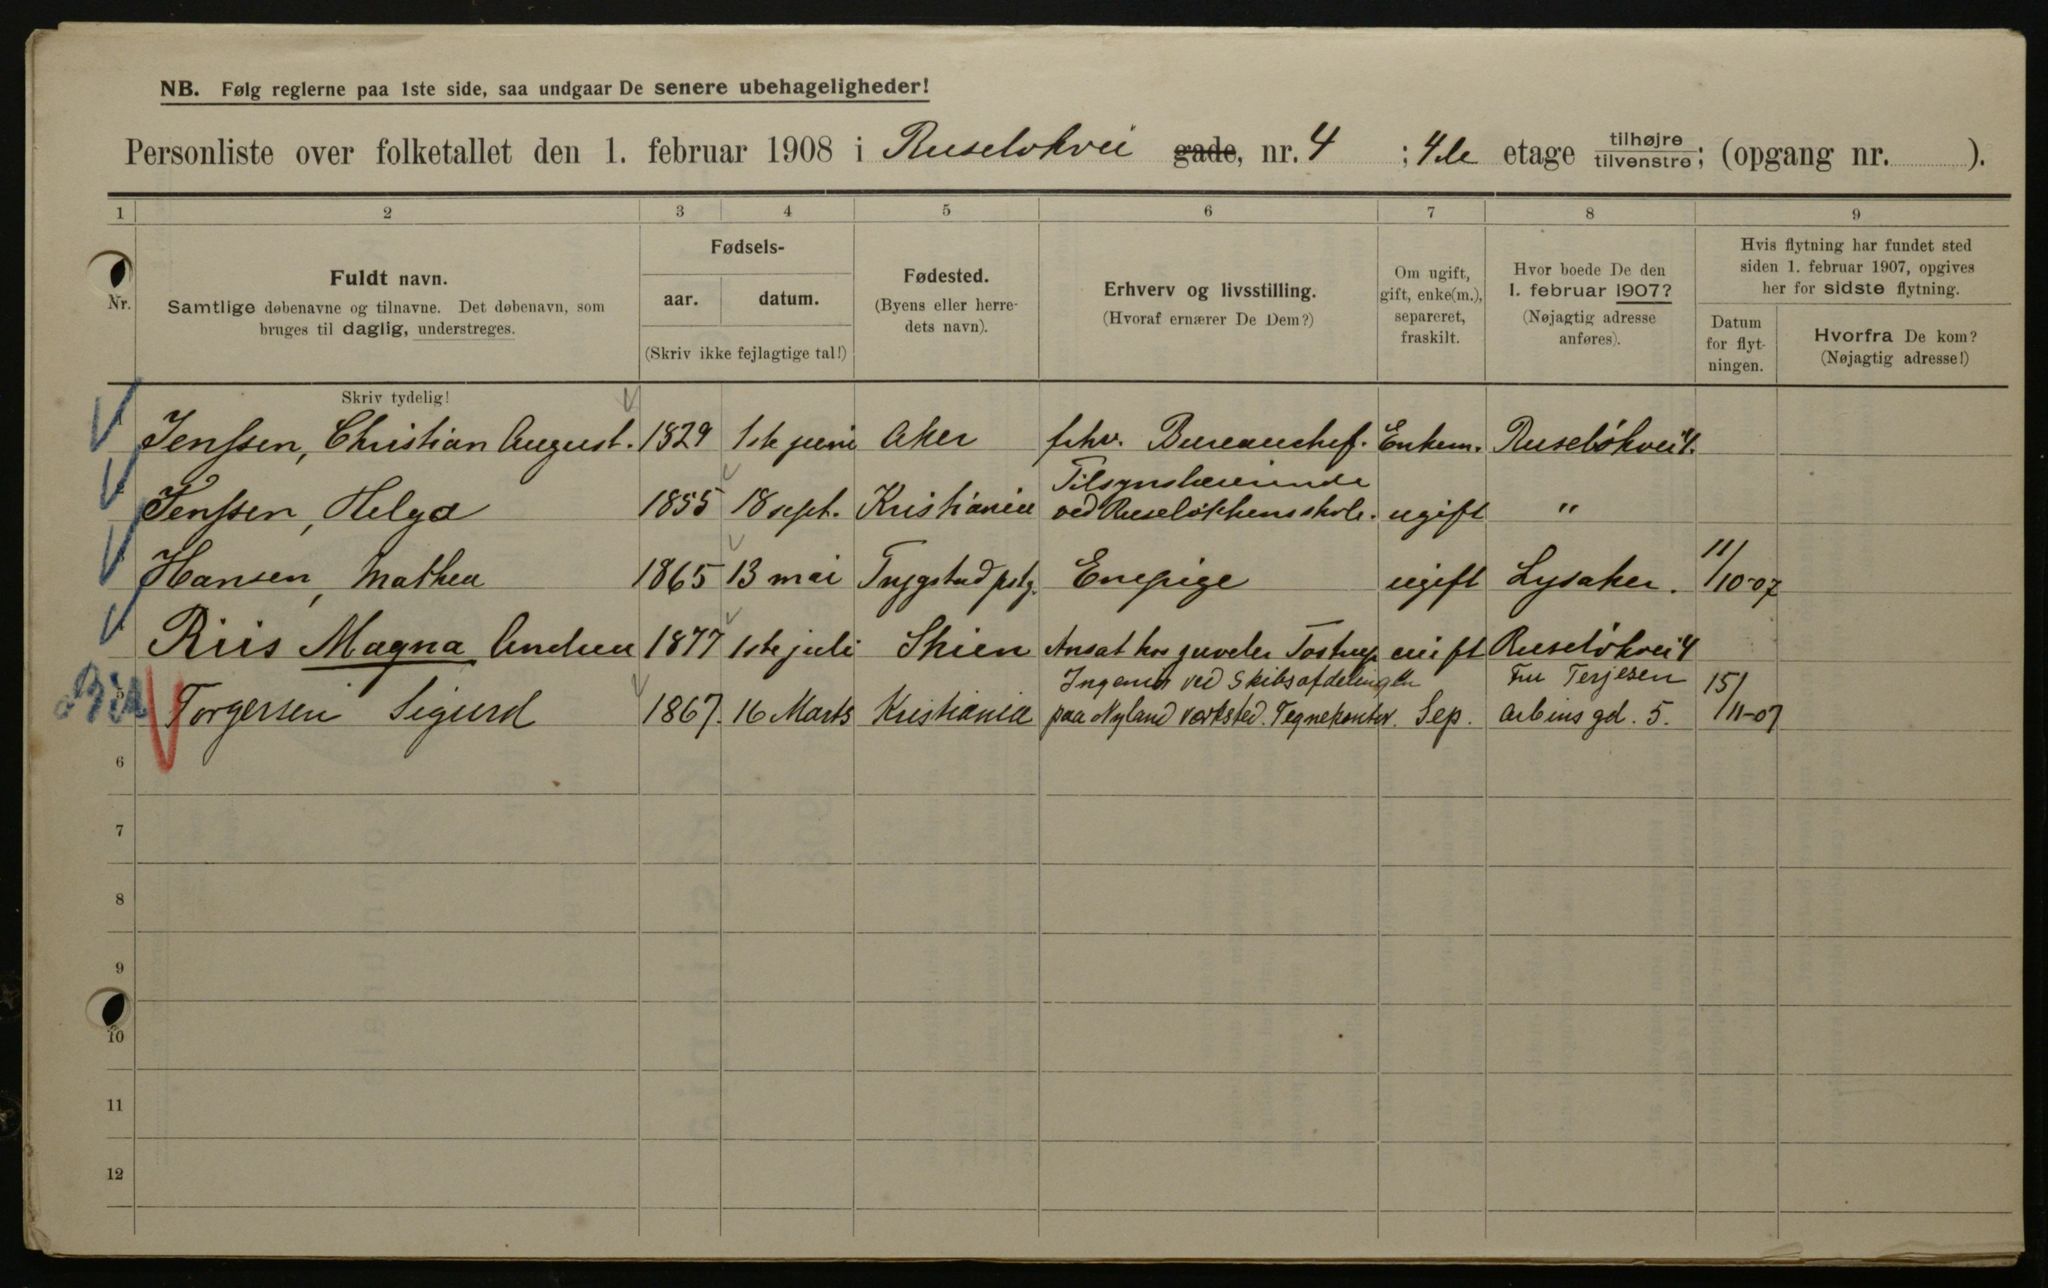 NB. Følg reglerne paa 1ste side, saa undgaar De senere ubehageligheder!
Personliste over folketallet den 1. februar 1908 i Ruseløkvei gade, nr. 4 ; 4de etage tilhøjre tilvenstre; (opgang nr. ).
1 2 3 4 5 6 7 8 9
Nr.
Fuldt navn.
Samtlige døbenavne og tilnavne. Det døbenavn, som
bruges til daglig, understreges.
Skriv tydelig!
Fødsels-
aar. datum.
(Skriv ikke fejlagtige tal!)
Fødested.
(Byens eller herre-
dets navn).
Erhverv og livsstilling.
(Hvoraf ernærer De Dem?)
Om ugift,
gift, enke(m.),
separeret,
fraskilt.
Hvor boede De den
1. februar 1907?
(Nøjagtig adresse
anføres).
Hvis flytning har fundet sted
siden 1. februar 1907, opgives
her for sidste flytning.
Datum
for flyt-
ningen.
Hvorfra De kom?
(Nøjagtig adresse!)
Jenssen, Christian August. 1829 1ste juni Aker fhv. Bureauchef. Enkem. Ruseløkvei 4.
Tilsynslærerinde
Jenssen, Helga 1855 18 sept. Kristiania ved Ruseløkkens skole. ugift "
Hansen, Mathea 1865 13 mai Trygstad pstg. Enepige ugift Lysaker. 11/10-07
Riis Magna Andrea 1877 1ste juli Skien Ansat hos juveler Tostrup ugift Ruseløkvei 4
Ingeniør ved Skibsafdelingen Fru Terjesen
5 Torgersen Sigurd 1867. 16 Marts Kristiania paa Nyland værksted. Tegnekontor. Sep. Arbins gd. 5. 15/11-07
6
7
8
9
10
11
12